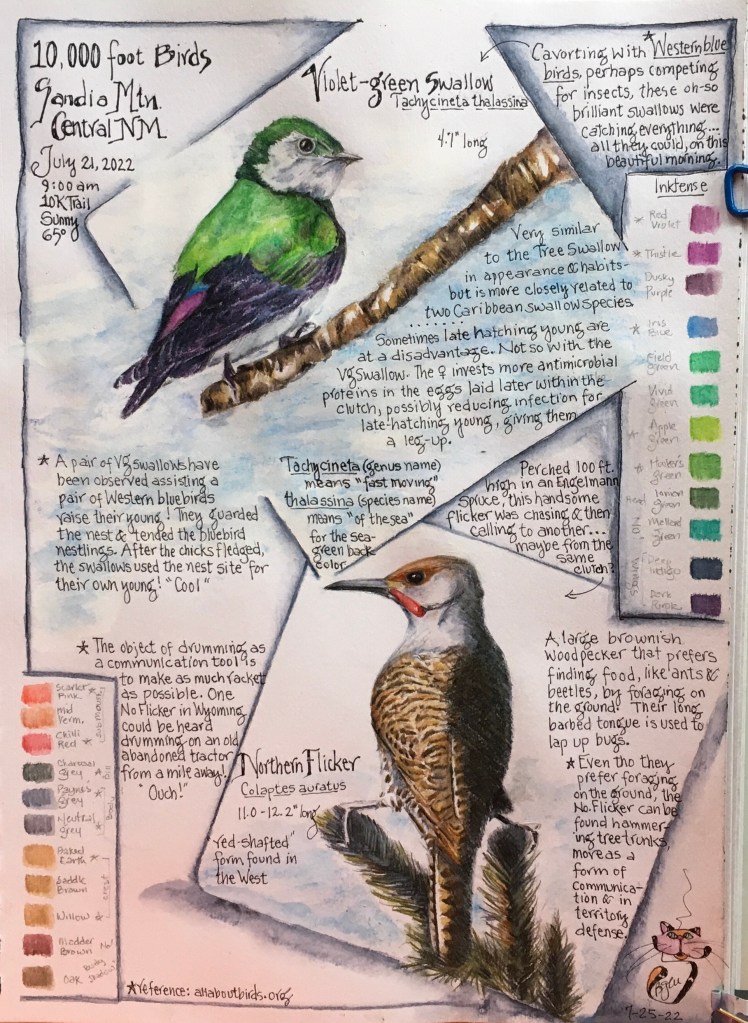 10,000 foot Birds
Sandia Mtn.
Central NM
July 21, 2022
9:00 am
10K Trail
Sunny
65°
Violet-green Swallow
Tachycineta thalassina
4.7" long
Cavorting with *Western blue
birds, perhaps competing
for insects, these oh-so
brilliant swallows were
catching everything...
all they could, on this
beautiful morning.
Inktense
* Red
Violet
* Thistle
Dusky
Purple
* Iris
Blue
Field
Green
Vivid
Green
* Apple
Green
* Hooker's
Green
Ionian
Green
Mallard
Green
Deep
Indigo
Dark
Purple
Head
Wings
Very similar
to the Tree Swallow
in appearance & habits-
but is more closely related to
two Caribbean swallow species
Sometimes late hatching young are
at a disadvantage. Not so with the
VgSwallow. The ♀ invests more antimicrobial
proteins in the eggs laid later within the
clutch, possibly reducing infection for
late-hatching young, giving them
a leg-up.
* A pair of Vg swallows have
been observed assisting a
pair of Western bluebirds
raise their young! They guarded
the nest & tended the bluebird
nestlings. After the chicks fledged,
the swallows used the nest site for
their own young! "Cool"
Tachycineta (genus name)
means "fast moving"
thalassina (species name)
means "of the sea"
for the sea-
green back
color
Perched 100 ft.
high in an Engelmann
Spruce, this handsome
flicker was chasing & then
calling to another...
maybe from the
same
clutch?
* The object of drumming as
a communication tool is
to make as much racket
as possible. One
No Flicker in Wyoming
could be heard
drumming on an old
abandoned tractor
from a mile away!
"Ouch!"
Northern Flicker
Colaptes auratus
11.0 - 12.2" long
"red-shafted"
form found in
the West
A large brownish
woodpecker that prefers
finding food, like ants &
beetles, by foraging on
the ground. Their long
barbed tongue is used to
lap up bugs.
* Even tho they
prefer foraging
on the ground, the
No. Flicker can be
found hammer-
ing tree trunks,
move as a
form of
communica-
tion & in
territory
defense.
Scarlet
Pink *
Mid
Verm.
Chilli
Red *
Charcoal
Grey *
Paynes
Grey
Neutral
Grey
Baked
Earth *
Saddle
Brown
Willow *
Madder
Brown No!
Oak
*reference: allaboutbirds.org
7-25-22